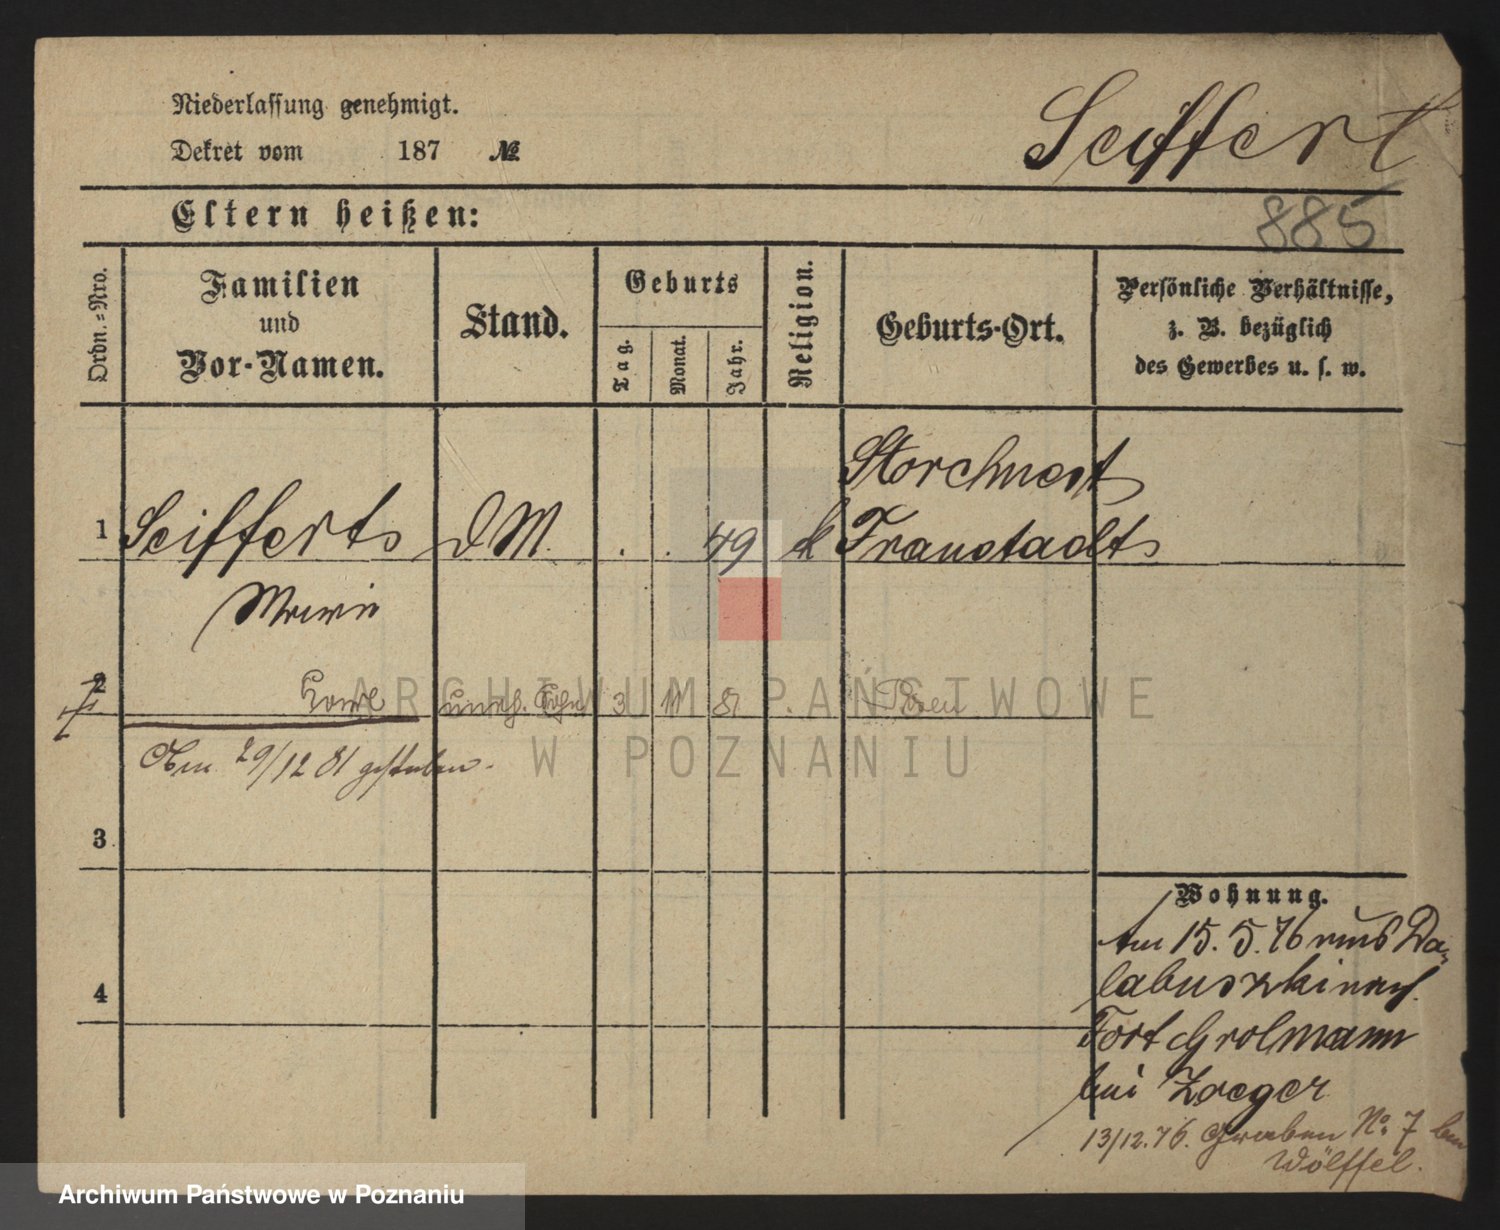 Niederlassung genehmigt.
Dekret vom 187 №
Seiffert
Eltern heißen:
885
Ordn.-Nro.
Familien
und
Vor-Namen.
Stand.
Geburts
Tag.
Monat.
Jahr.
Religion.
Geburts-Ort.
Persönliche Verhältnisse,
z. B. bezüglich
des Gewerbes u. s. w.
Storchnest
1 Seifferts DM . . 49 k Fraustadts
Marie
2 uneh. Sohn 3 11 81 Posen
Am 29/12 81 gestorben.
3
4
Wohnung.
Am 15.5.76 aus Da-
labuszki nach
Fort Grolmann
bei Zaeger
13/12.76. Graben No. 7 bei
Wölffel.
ARCHIWUM PAŃSTWOWE
W POZNANIU
Archiwum Państwowe w Poznaniu